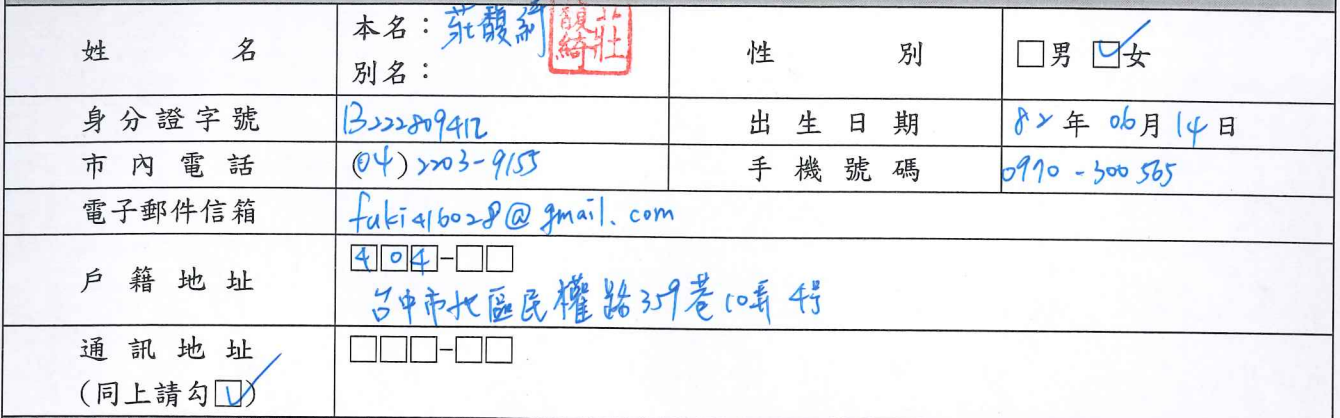 姓名 本名：莊馥綺 莊馥綺 性別 □男 ☑女
別名：
身分證字號 B222809412 出生日期 82年06月14日
市內電話 (04)2203-9155 手機號碼 0970-300565
電子郵件信箱 fuki416028@gmail.com
戶籍地址 404-□□
台中市北區民權路359巷10弄4号
通訊地址 □□□-□□
(同上請勾☑)